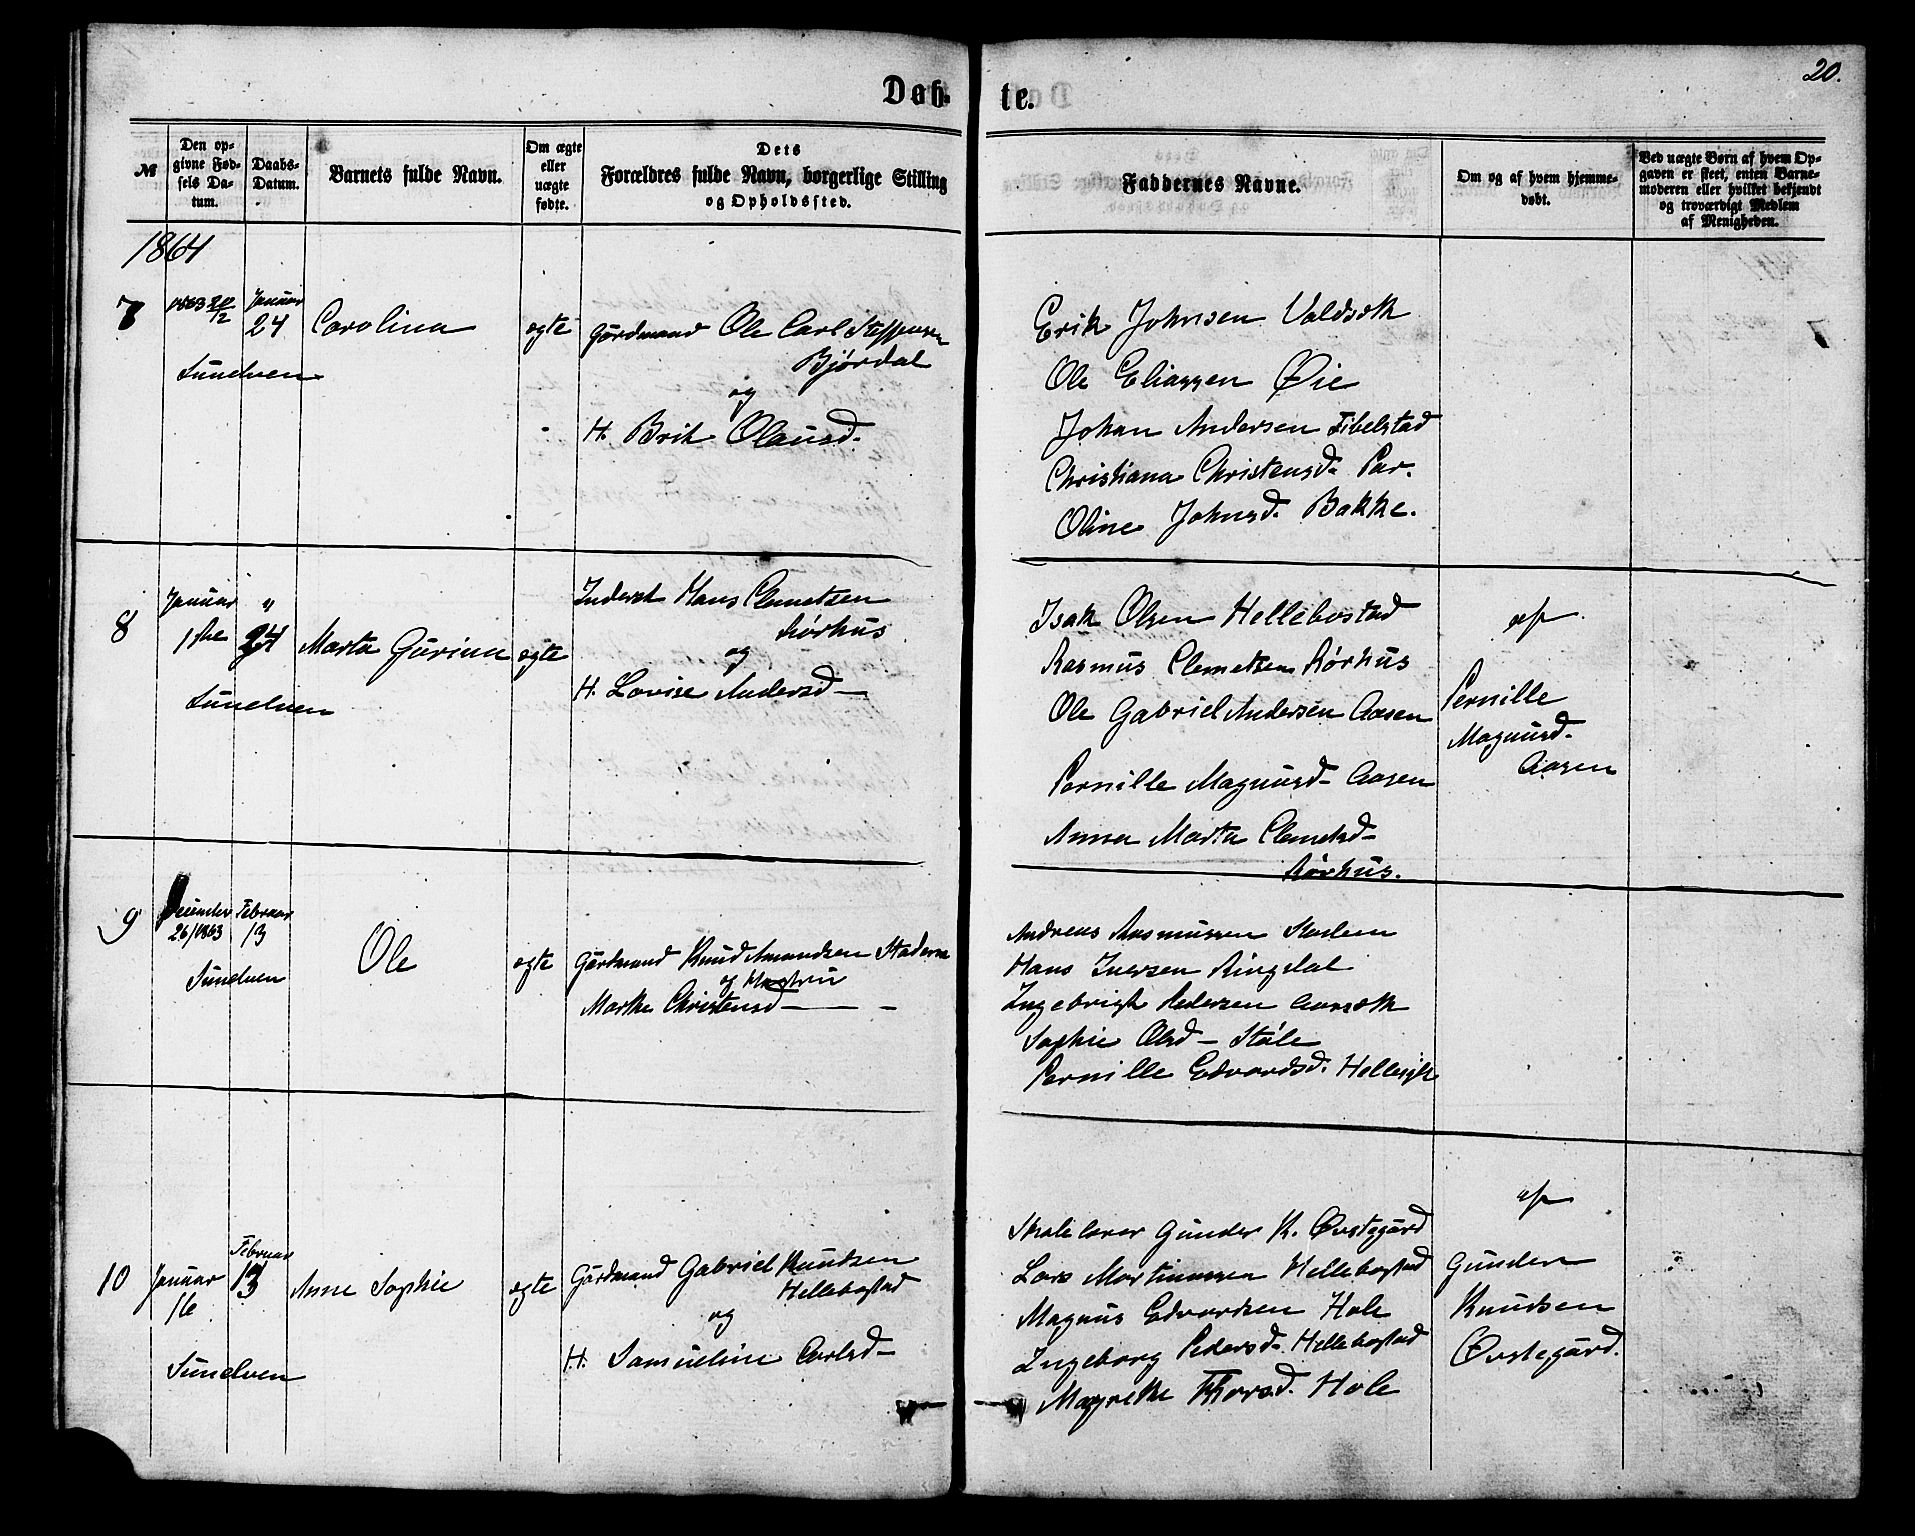 Døb-
te.
20.
№
Den op-
givne Fød-
sels Da-
tum.
Daabs-
Datum.
Barnets fulde Navn.
Om ægte
eller
uægte
fødte.
Dets
Forældres fulde Navn, borgerlige Stilling
og Opholdssted.
Faddernes Navne.
Om og af hvem hjemme-
døbt.
Ved uægte Børn af hvem Op-
gaven er skeet, enten Barne-
moderen eller hvilket bekjendt
og troværdigt Medlem
af Menigheden.
1864
7
1863 20/12
Januar
24
Carolina
ægte
Gårdmand Ole Carl Steffensen
Bjørdal
og
H. Brit Olausd.
Sunelven
Erik Johnsen
Ole Eliassen Øie
Johan Andersen Fibelstad
Christiana Christensd.
Oline Johnsd. Bakke.
8
Januar
1ste
"
24
Marta Gurina
ægte
Inderst Hans Clemetsen
Rørhus
og
H. Lovise Andersd —
Sunelven
Isak Olsen Hellebostad
Rasmus Clemetsen Rørhus
Ole Gabriel Andersen Aasen
Pernille Magnusd- Aasen
Anna Marta Clemetsd-
Rørhus.
af
Pernille
Magnusd-
Aasen
9
December
26/1863
Februar
13
Ole
ægte
Gårdmand Knud Amundsen
og Hustru
Marthe Christensd — —
Sunelven
Andreas Rasmussen
Hans Iversen Ringdal
Ingebrigt Pedersen
Sophie Olsd —
Pernille Edvardsd. Hellesylt
10
Januar
16
Februar
13
Anne Sophie
ægte
Gårdmand Gabriel Knudsen
Hellebostad
og
H. Samueline Carlsd-
Sunelven
Skolelærer Gunder K. Øvstegård
Lars Martinussen Hellebostad
Magnus Edvardsen Hole
Ingeborg Pedersd- Hellebostad
Magrethe Thorsd. Hole
af
Gunder
Knudsen
Øvstegård.